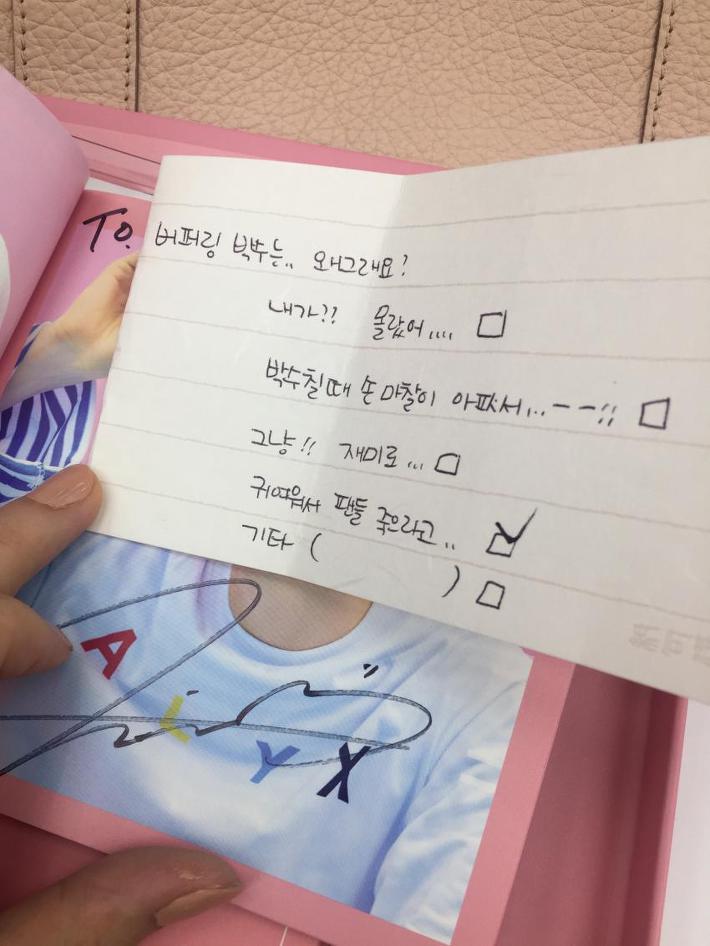 To.
버퍼링 박수는.. 왜그래요?
내가?? 몰랐어....
박수칠때 손 마찰이 아파서...--;;
그냥!! 재미로...
귀여워서 팬들 죽으라고..
기타 ( )
A L Y X